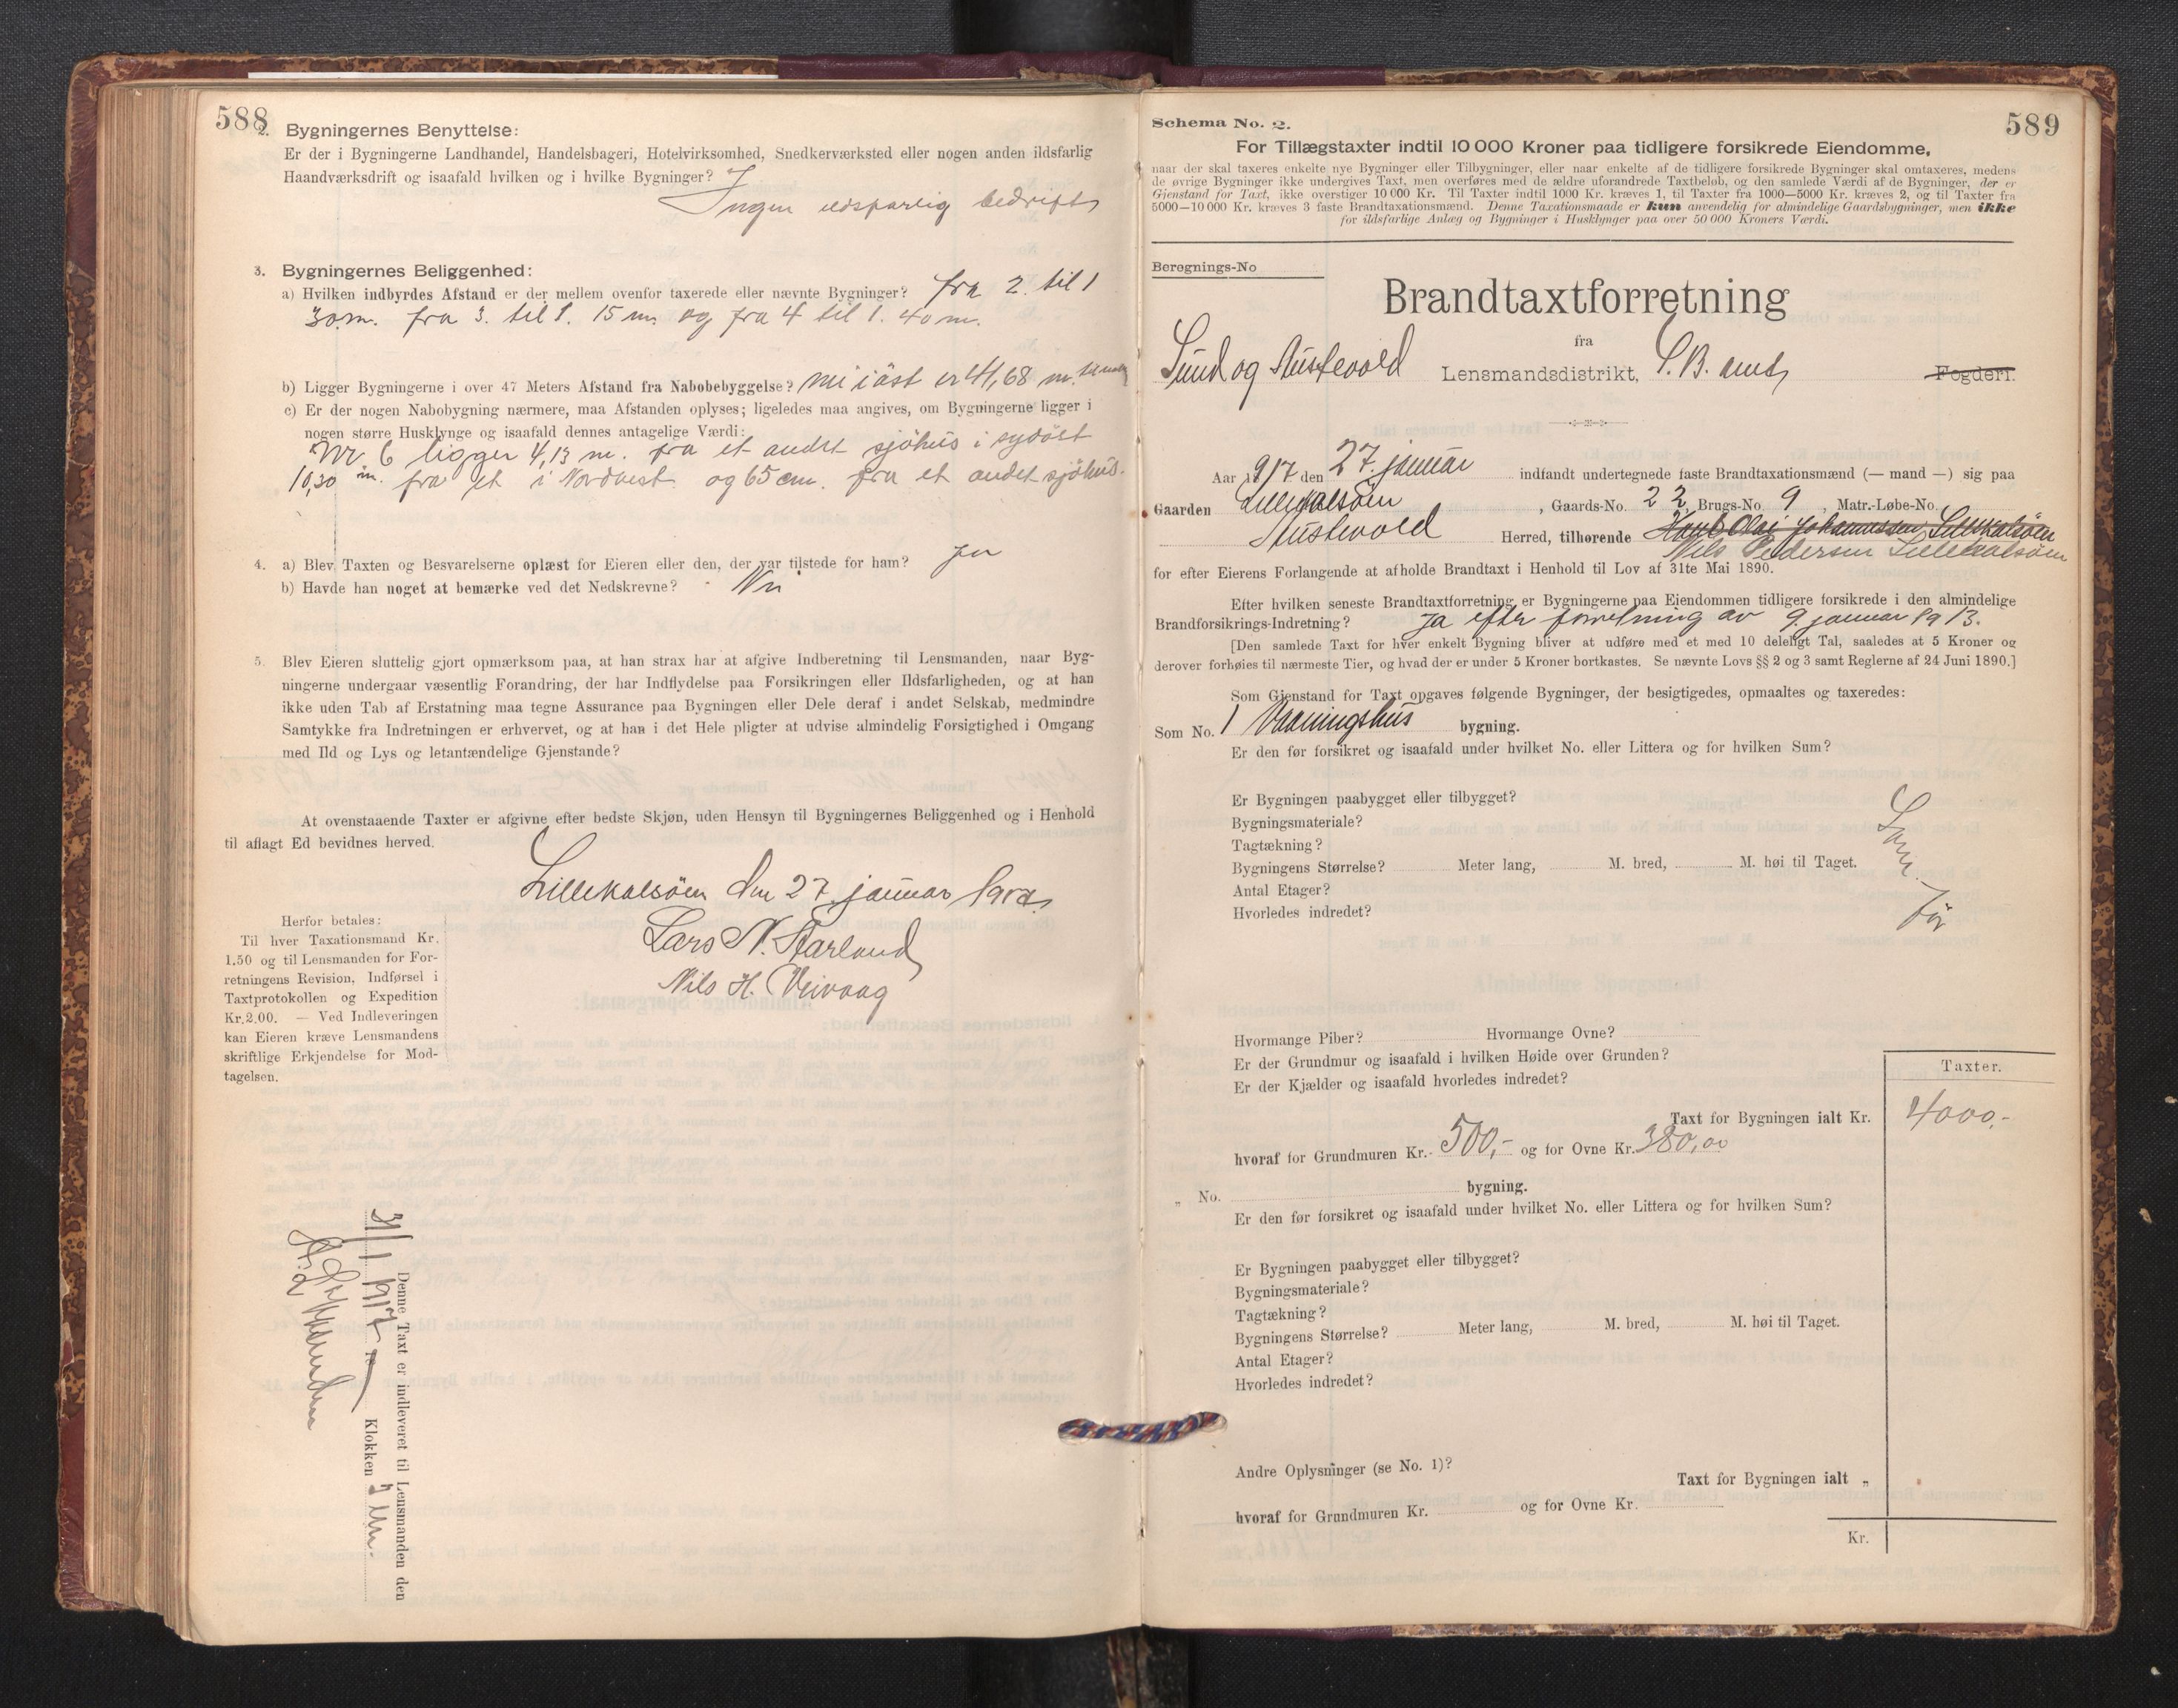 588
2. Bygningernes Benyttelse:
Er der i Bygningerne Landhandel, Handelsbageri, Hotelvirksomhed, Snedkerværksted eller nogen anden ildsfarlig
Haandværksdrift og isaafald hvilken og i hvilke Bygninger?
Ingen ildsfarlig bedrift
3. Bygningernes Beliggenhed:
a) Hvilken indbyrdes Afstand er der mellem ovenfor taxerede eller nævnte Bygninger? fra 2. til 1
30 m. fra 3. til 1. 15 m. og fra 4 til 1. 40 m.
b) Ligger Bygningerne i over 47 Meters Afstand fra Nabobebyggelse? nei i øst er 41,68 m.
c) Er der nogen Nabobygning nærmere, maa Afstanden oplyses; ligeledes maa angives, om Bygningerne ligger i
nogen større Husklynge og isaafald dennes antagelige Værdi:
Nr. 6 ligger 4,13 m. fra et andet sjøhus i sydøst
10,30 m. fra et i Nordvest og 65 cm. fra et andet sjøhus.
4. a) Blev Taxten og Besvarelserne oplæst for Eieren eller den, der var tilstede for ham? Ja
b) Havde han noget at bemærke ved det Nedskrevne? Nei
5. Blev Eieren sluttelig gjort opmærksom paa, at han strax har at afgive Indberetning til Lensmanden, naar Byg-
ningerne undergaar væsentlig Forandring, der har Indflydelse paa Forsikringen eller Ildsfarligheden, og at han
ikke uden Tab af Erstatning maa tegne Assurance paa Bygningen eller Dele deraf i andet Selskab, medmindre
Samtykke fra Indretningen er erhvervet, og at han i det Hele pligter at udvise almindelig Forsigtighed i Omgang
med Ild og Lys og letantændelige Gjenstande?
At ovenstaaende Taxter er afgivne efter bedste Skjøn, uden Hensyn til Bygningernes Beliggenhed og i Henhold
til aflagt Ed bevidnes herved.
Lillekalsøen den 27. januar
Lars N. Storland
Nils H. Veivaag
Herfor betales:
Til hver Taxationsmand Kr.
1.50 og til Lensmanden for For-
retningens Revision, Indførsel i
Taxtprotokollen og Expedition
Kr.2.00. — Ved Indleveringen
kan Eieren kræve Lensmandens
skriftlige Erkjendelse for Mod-
tagelsen.
Denne Taxt er indleveret til Lensmanden den
31/1 1917 18 Klokken
589
Schema No. 2.
For Tillægstaxter indtil 10 000 Kroner paa tidligere forsikrede Eiendomme,
naar der skal taxeres enkelte nye Bygninger eller Tilbygninger, eller naar enkelte af de tidligere forsikrede Bygninger skal omtaxeres, medens
de øvrige Bygninger ikke undergives Taxt, men overføres med de ældre uforandrede Taxtbeløb, og den samlede Værdi af de Bygninger, der er
Gjenstand for Taxt, ikke overstiger 10 000 Kr. Til Taxter indtil 1000 Kr. kræves 1, til Taxter fra 1000—5000 Kr. kræves 2, og til Taxter fra
5000—10 000 Kr. kræves 3 faste Brandtaxationsmænd. Denne Taxationsmaade er kun anvendelig for almindelige Gaardsbygninger, men ikke
for ildsfarlige Anlæg og Bygninger i Husklynger paa over 50 000 Kroners Værdi.
Beregnings-No
Brandtaxtforretning
fra
Sund og Austevold Lensmandsdistrikt, S. B. amt, Fogderi.
Aar 1917 den 27. januar indfandt undertegnede faste Brandtaxationsmænd (— mand —) sig paa
Gaarden Lillekalsøen, Gaards-No. 22, Brugs-No. 9, Matr.-Løbe-No.
Austevold Herred, tilhørende Olai Johannessen Lillekalsøen
Nils Pedersen Lillekalsøen
for efter Eierens Forlangende at afholde Brandtaxt i Henhold til Lov af 31te Mai 1890.
Efter hvilken seneste Brandtaxtforretning er Bygningerne paa Eiendommen tidligere forsikrede i den almindelige
Brandforsikrings-Indretning? Ja efter forretning av 9. januar 1913.
[Den samlede Taxt for hver enkelt Bygning bliver at udføre med et med 10 deleligt Tal, saaledes at 5 Kroner og
derover forhøies til nærmeste Tier, og hvad der er under 5 Kroner bortkastes. Se nævnte Lovs §§ 2 og 3 samt Reglerne af 24 Juni 1890.]
Som Gjenstand for Taxt opgaves følgende Bygninger, der besigtigedes, opmaaltes og taxeredes:
Som No. 1 Vaaningshus bygning.
Er den før forsikret og isaafald under hvilket No. eller Littera og for hvilken Sum?
Er Bygningen paabygget eller tilbygget?
Bygningsmateriale?
Tagtækning?
Bygningens Størrelse? Meter lang, M. bred, M. høi til Taget.
Antal Etager?
Hvorledes indredet?
Som før
Hvormange Piber? Hvormange Ovne?
Er der Grundmur og isaafald i hvilken Høide over Grunden?
Er der Kjælder og isaafald hvorledes indredet?
Taxter.
Taxt for Bygningen ialt Kr. 4000,-
hvoraf for Grundmuren Kr. 500,- og for Ovne Kr. 380,00
„ No. bygning.
Er den før forsikret og isaafald under hvilket No. eller Littera og for hvilken Sum?
Er Bygningen paabygget eller tilbygget?
Bygningsmateriale?
Tagtækning?
Bygningens Størrelse? Meter lang, M. bred, M. høi til Taget.
Antal Etager?
Hvorledes indredet?
Andre Oplysninger (se No. 1)?
Taxt for Bygningen ialt „
hvoraf for Grundmuren Kr. og for Ovne Kr.
Kr.